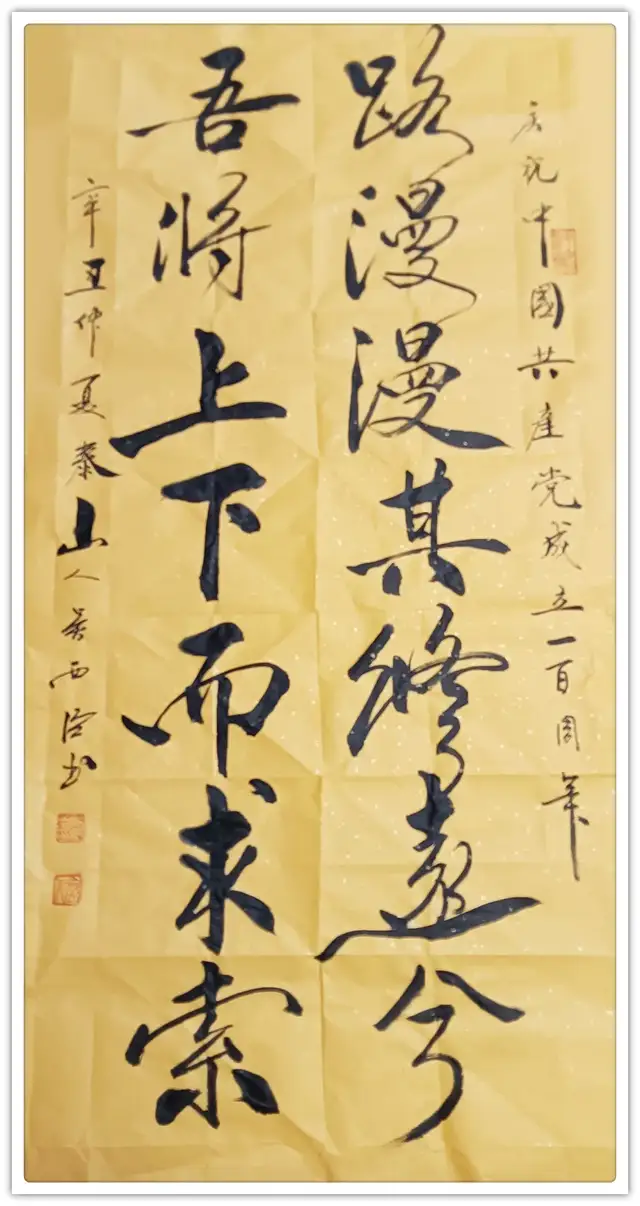 庆祝中國共産党成立一百周年
路漫漫其修遠兮
吾将上下而求索
辛丑仲夏泰山人吴西臣书